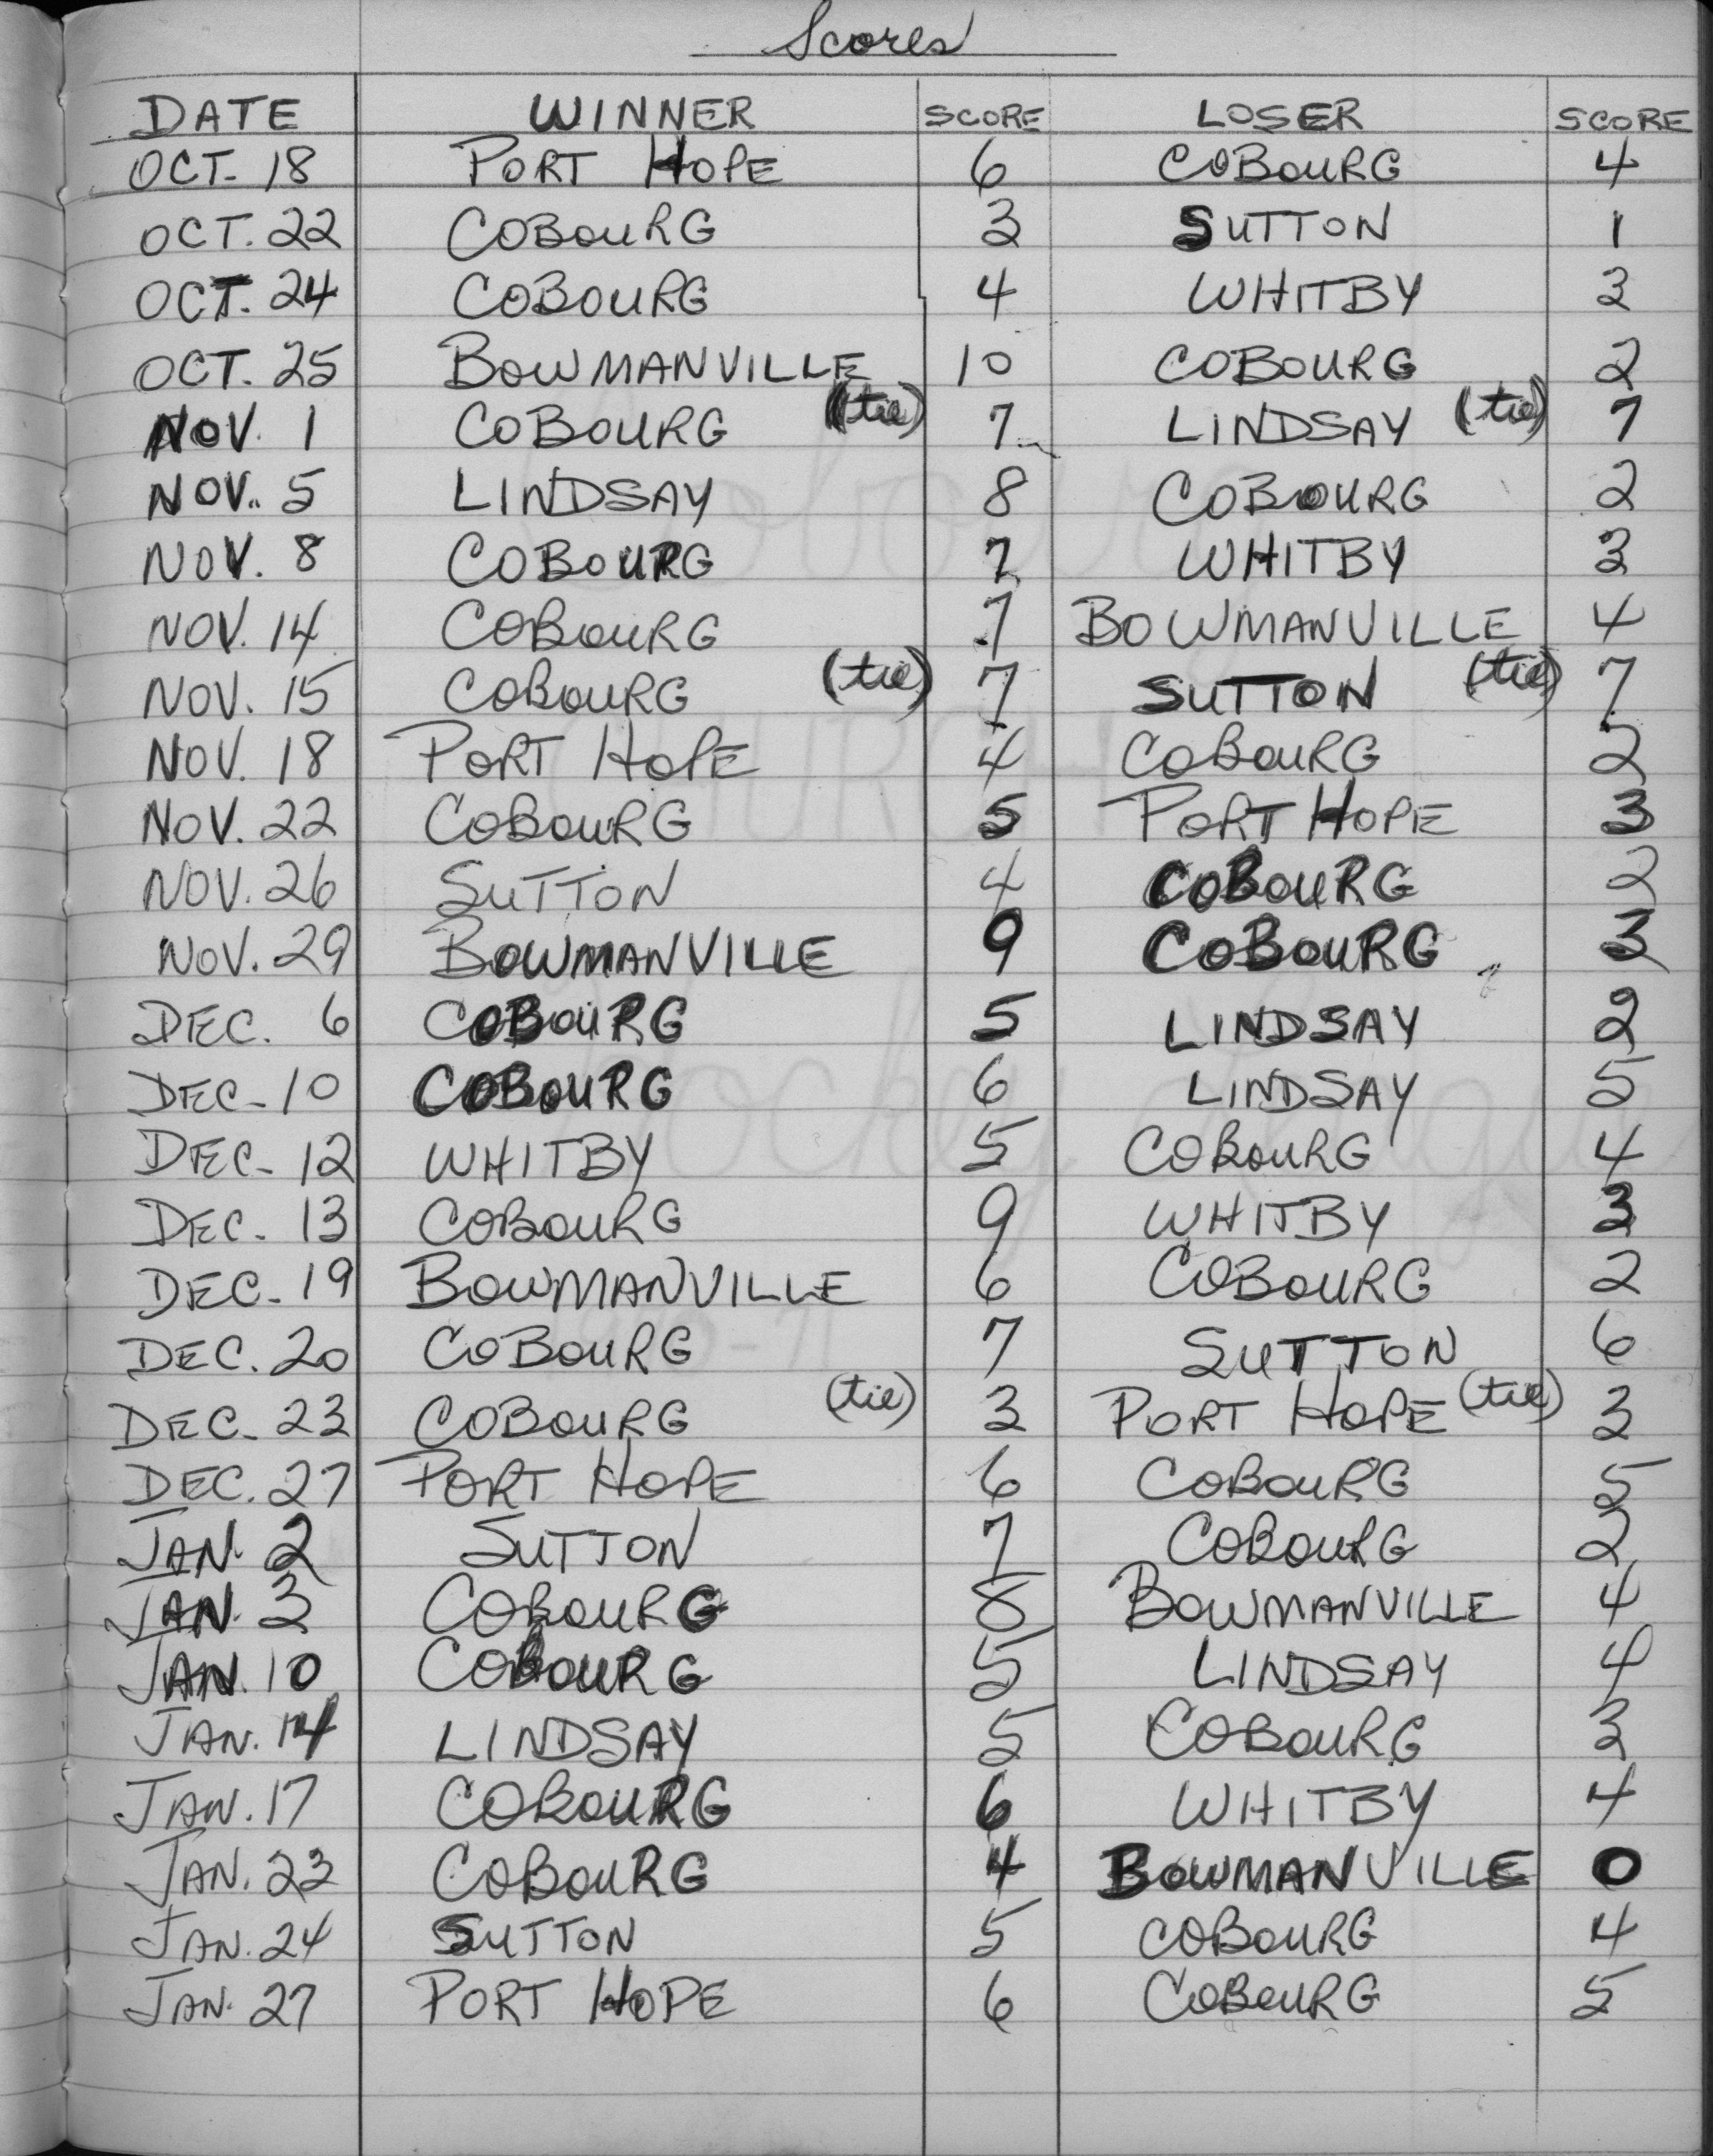 Scores
DATE WINNER SCORE LOSER SCORE
OCT. 18 PORT HOPE 6 COBOURG 4
OCT. 22 COBOURG 3 SUTTON 1
OCT. 24 COBOURG 4 WHITBY 3
OCT. 25 BOWMANVILLE 10 COBOURG 2
NOV. 1 COBOURG (tie) 7 LINDSAY (tie) 7
NOV. 5 LINDSAY 8 COBOURG 2
NOV. 8 COBOURG 7 WHITBY 3
NOV. 14 COBOURG 7 BOWMANVILLE 4
NOV. 15 COBOURG (tie) 7 SUTTON (tie) 7
NOV. 18 PORT HOPE 4 COBOURG 2
NOV. 22 COBOURG 5 PORT HOPE 3
NOV. 26 SUTTON 4 COBOURG 2
NOV. 29 BOWMANVILLE 9 COBOURG 3
DEC. 6 COBOURG 5 LINDSAY 2
DEC. 10 COBOURG 6 LINDSAY 5
DEC. 12 WHITBY 5 COBOURG 4
DEC. 13 COBOURG 9 WHITBY 3
DEC. 19 BOWMANVILLE 6 COBOURG 2
DEC. 20 COBOURG 7 SUTTON 6
DEC. 23 COBOURG (tie) 3 PORT HOPE (tie) 3
DEC. 27 PORT HOPE 6 COBOURG 5
JAN. 2 SUTTON 7 COBOURG 2
JAN. 3 COBOURG 8 BOWMANVILLE 4
JAN. 10 COBOURG 5 LINDSAY 4
JAN. 14 LINDSAY 5 COBOURG 3
JAN. 17 COBOURG 6 WHITBY 4
JAN. 23 COBOURG 4 BOWMANVILLE 0
JAN. 24 SUTTON 5 COBOURG 4
JAN. 27 PORT HOPE 6 COBOURG 5